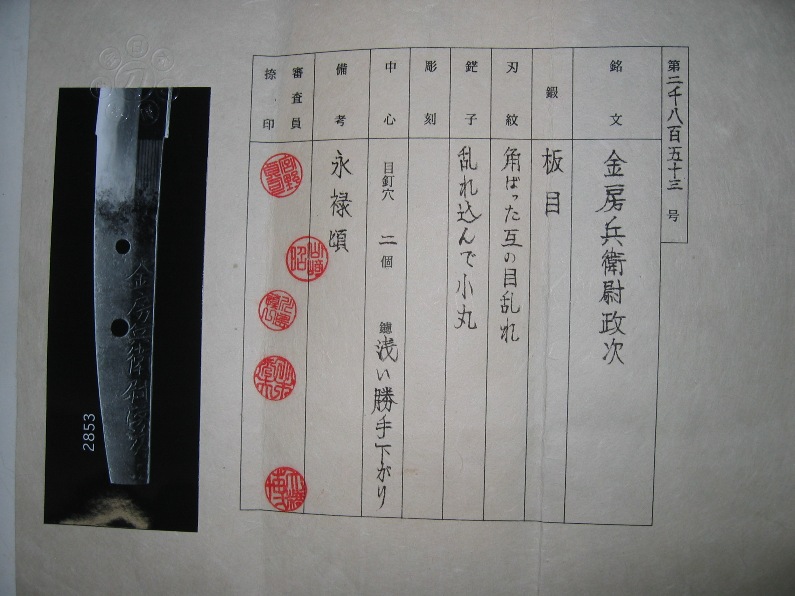 第二千八百五十三号
銘文
金房兵衛尉政次
鍛
板目
刃紋
角ばった互の目乱れ
鋩子
乱れ込んで小丸
彫刻
中心
目釘穴 二個 鑢 浅い勝手下がり
備考
永禄頃
審査員
捺印
2853